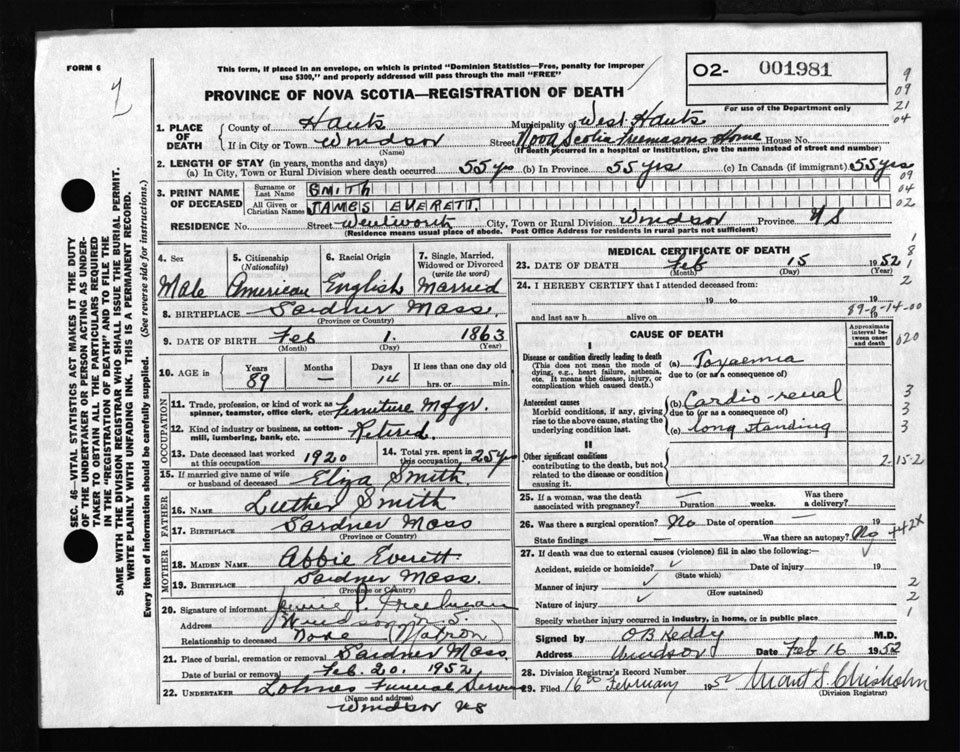 FORM 6
This form, if placed in an envelope, on which is printed "Dominion Statistics—Free, penalty for improper
use $300," and properly addressed will pass through the mail "FREE"
PROVINCE OF NOVA SCOTIA—REGISTRATION OF DEATH
02- 001981
For use of the Department only
9
09
21
04
1. PLACE OF DEATH
County of Hants Municipality of West Hants
If in City or Town Windsor Street Nova Scotia Freemasons Home House No.
(Name) (If death occurred in a hospital or institution, give the name instead of street and number)
2. LENGTH OF STAY (in years, months and days)
(a) In City, Town or Rural Division where death occurred 55 yr (b) In Province 55 yrs (c) In Canada (if immigrant) 55 yrs
09
04
02
3. PRINT NAME OF DECEASED
Surname or Last Name SMITH
All Given or Christian Names JAMES EVERETT.
RESIDENCE No. Street Wentworth City, Town or Rural Division Windsor Province NS
(Residence means usual place of abode. Post Office Address for residents in rural parts not sufficient)
SEC. 46—VITAL STATISTICS ACT MAKES IT THE DUTY
OF THE UNDERTAKER OR PERSON ACTING AS UNDER-
TAKER TO OBTAIN ALL THE PARTICULARS REQUIRED
IN THE "REGISTRATION OF DEATH" AND TO FILE THE
SAME WITH THE DIVISION REGISTRAR WHO SHALL ISSUE THE BURIAL PERMIT.
WRITE PLAINLY WITH UNFADING INK. THIS IS A PERMANENT RECORD.
Every item of information should be carefully supplied. (See reverse side for instructions.)
4. Sex
Male
5. Citizenship
(Nationality)
American
6. Racial Origin
English
7. Single, Married,
Widowed or Divorced
(write the word)
Married
8. BIRTHPLACE Gardner Mass.
(Province or Country)
9. DATE OF BIRTH Feb 1. 1863
(Month) (Day) (Year)
10. AGE in Years 89 Months — Days 14 If less than one day old
hrs. or min.
OCCUPATION
11. Trade, profession, or kind of work as
spinner, teamster, office clerk, etc. Furniture Mfgr.
12. Kind of industry or business, as cotton-
mill, lumbering, bank, etc. Retired.
13. Date deceased last worked
at this occupation 1920
14. Total yrs. spent in
this occupation 25 yrs
15. If married give name of wife
or husband of deceased Eliza Smith
FATHER
16. NAME Luther Smith
17. BIRTHPLACE Gardner Mass
(Province or Country)
MOTHER
18. MAIDEN NAME Abbie Everitt
19. BIRTHPLACE Gardner Mass.
(Province or Country)
20. Signature of informant Freeman
Address Windsor N.S.
Relationship to deceased None (Matron)
21. Place of burial, cremation or removal Gardner Mass.
Date of burial or removal Feb. 20. 1952
22. UNDERTAKER Lohnes Funeral Service
(Name and address)
Windsor NS
MEDICAL CERTIFICATE OF DEATH
23. DATE OF DEATH Feb 15 1952
(Month) (Day) (Year)
1
8
1
2
24. I HEREBY CERTIFY that I attended deceased from:
19 to 19
89-0-14-00
and last saw h alive on 19
CAUSE OF DEATH
Approximate interval between onset and death
020
I
Disease or condition directly leading to death
(This does not mean the mode of dying, e.g., heart failure, asthenia, etc. It means the disease, injury, or complication which caused death.)
(a) Toxaemia
due to (or as a consequence of)
Antecedent causes
Morbid conditions, if any, giving rise to the above cause, stating the underlying condition last.
(b) Cardio-renal
due to (or as a consequence of)
(c) long standing
3
3
3
II
Other significant conditions
contributing to the death, but not related to the disease or condition causing it.
2-15-2
25. If a woman, was the death
associated with pregnancy? — Duration weeks. Was there a delivery?
26. Was there a surgical operation? No Date of operation — 19
State findings — Was there an autopsy? No
442x
27. If death was due to external causes (violence) fill in also the following:—
Accident, suicide or homicide? Date of injury 19
(State which)
Manner of injury
(How sustained)
Nature of injury
2
2
1
Specify whether injury occurred in industry, in home, or in public place
Signed by O B Keddy M.D.
Address Windsor Date Feb 16 1952
28. Division Registrar's Record Number
29. Filed 16th February 1952 Chisholm
(Division Registrar)